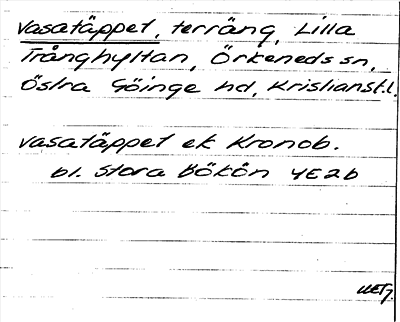 Vasatäppet, terräng, Lilla
Trånghyltan, Örkeneds sn,
Östra Göinge hd, Kristianst.l.
Vasatäppet ek Kronob.
bl. Stora Bökön 4E2b